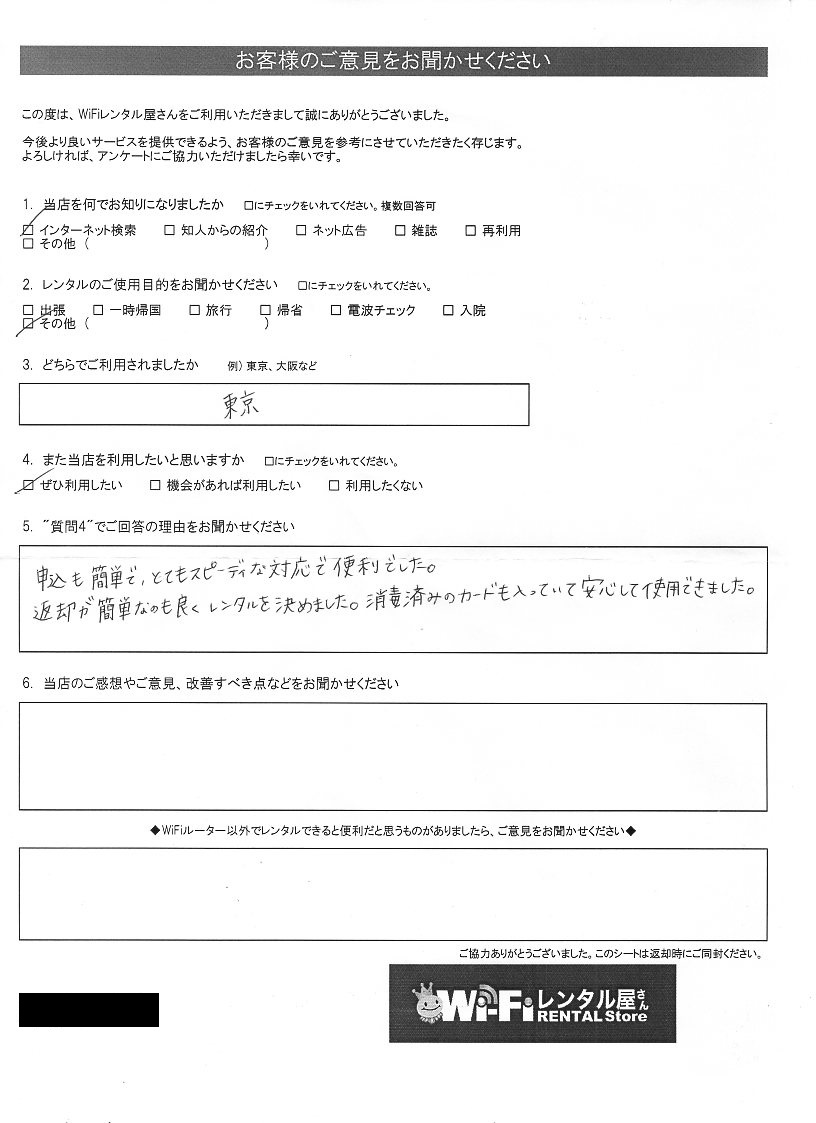 お客様のご意見をお聞かせください
この度は、WiFiレンタル屋さんをご利用いただきまして誠にありがとうございました。
今後より良いサービスを提供できるよう、お客様のご意見を参考にさせていただきたく存じます。
よろしければ、アンケートにご協力いただけましたら幸いです。
1. 当店を何でお知りになりましたか □にチェックをいれてください。複数回答可
□ インターネット検索 □ 知人からの紹介 □ ネット広告 □ 雑誌 □ 再利用
□ その他 ( )
2. レンタルのご使用目的をお聞かせください □にチェックをいれてください。
□ 出張 □ 一時帰国 □ 旅行 □ 帰省 □ 電波チェック □ 入院
□ その他 ( )
3. どちらでご利用されましたか 例) 東京、大阪など
東京
4. また当店を利用したいと思いますか □にチェックをいれてください。
□ ぜひ利用したい □ 機会があれば利用したい □ 利用したくない
5. "質問4"でご回答の理由をお聞かせください
申込も簡単で、とてもスピーディな対応で便利でした。
返却が簡単なのも良くレンタルを決めました。消毒済みのカードも入っていて安心して使用できました。
6. 当店のご感想やご意見、改善すべき点などをお聞かせください
◆WiFiルーター以外でレンタルできると便利だと思うものがありましたら、ご意見をお聞かせください◆
ご協力ありがとうございました。このシートは返却時にご同封ください。
Wi-Fiレンタル屋さん
RENTAL Store